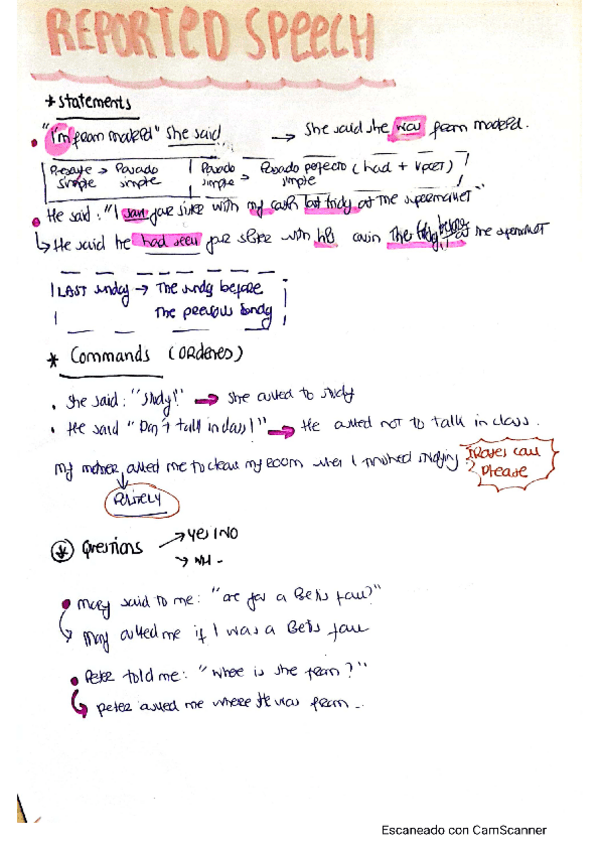 REPORTED SPEECH
* Statements
"I'm from madrid" she said → She said she was from madrid.
Presente → Pasado | Pasado → Pasado perfecto (had + Vpart)
simple simple simple simple
He said: "I saw your sister with my cousin last friday at the supermarket"
↳ He said he had seen your sister with his cousin the friday before at the supermarket
LAST sunday → The sunday before
The previous sunday
* Commands (orderes)
• She said: "Study!" → She asked to study
• He said "Don't talk in class!" → He asked not to talk in class.
My mother asked me to clean my room when I finished studying
Please
Politely
* Questions → Yes/NO
→ WH -
Mary said to me: "are you a Betis fan?"
Mary asked me if I was a Betis fan
Peter told me: "Where is she from?"
Peter asked me where he was from.
Escaneado con CamScanner